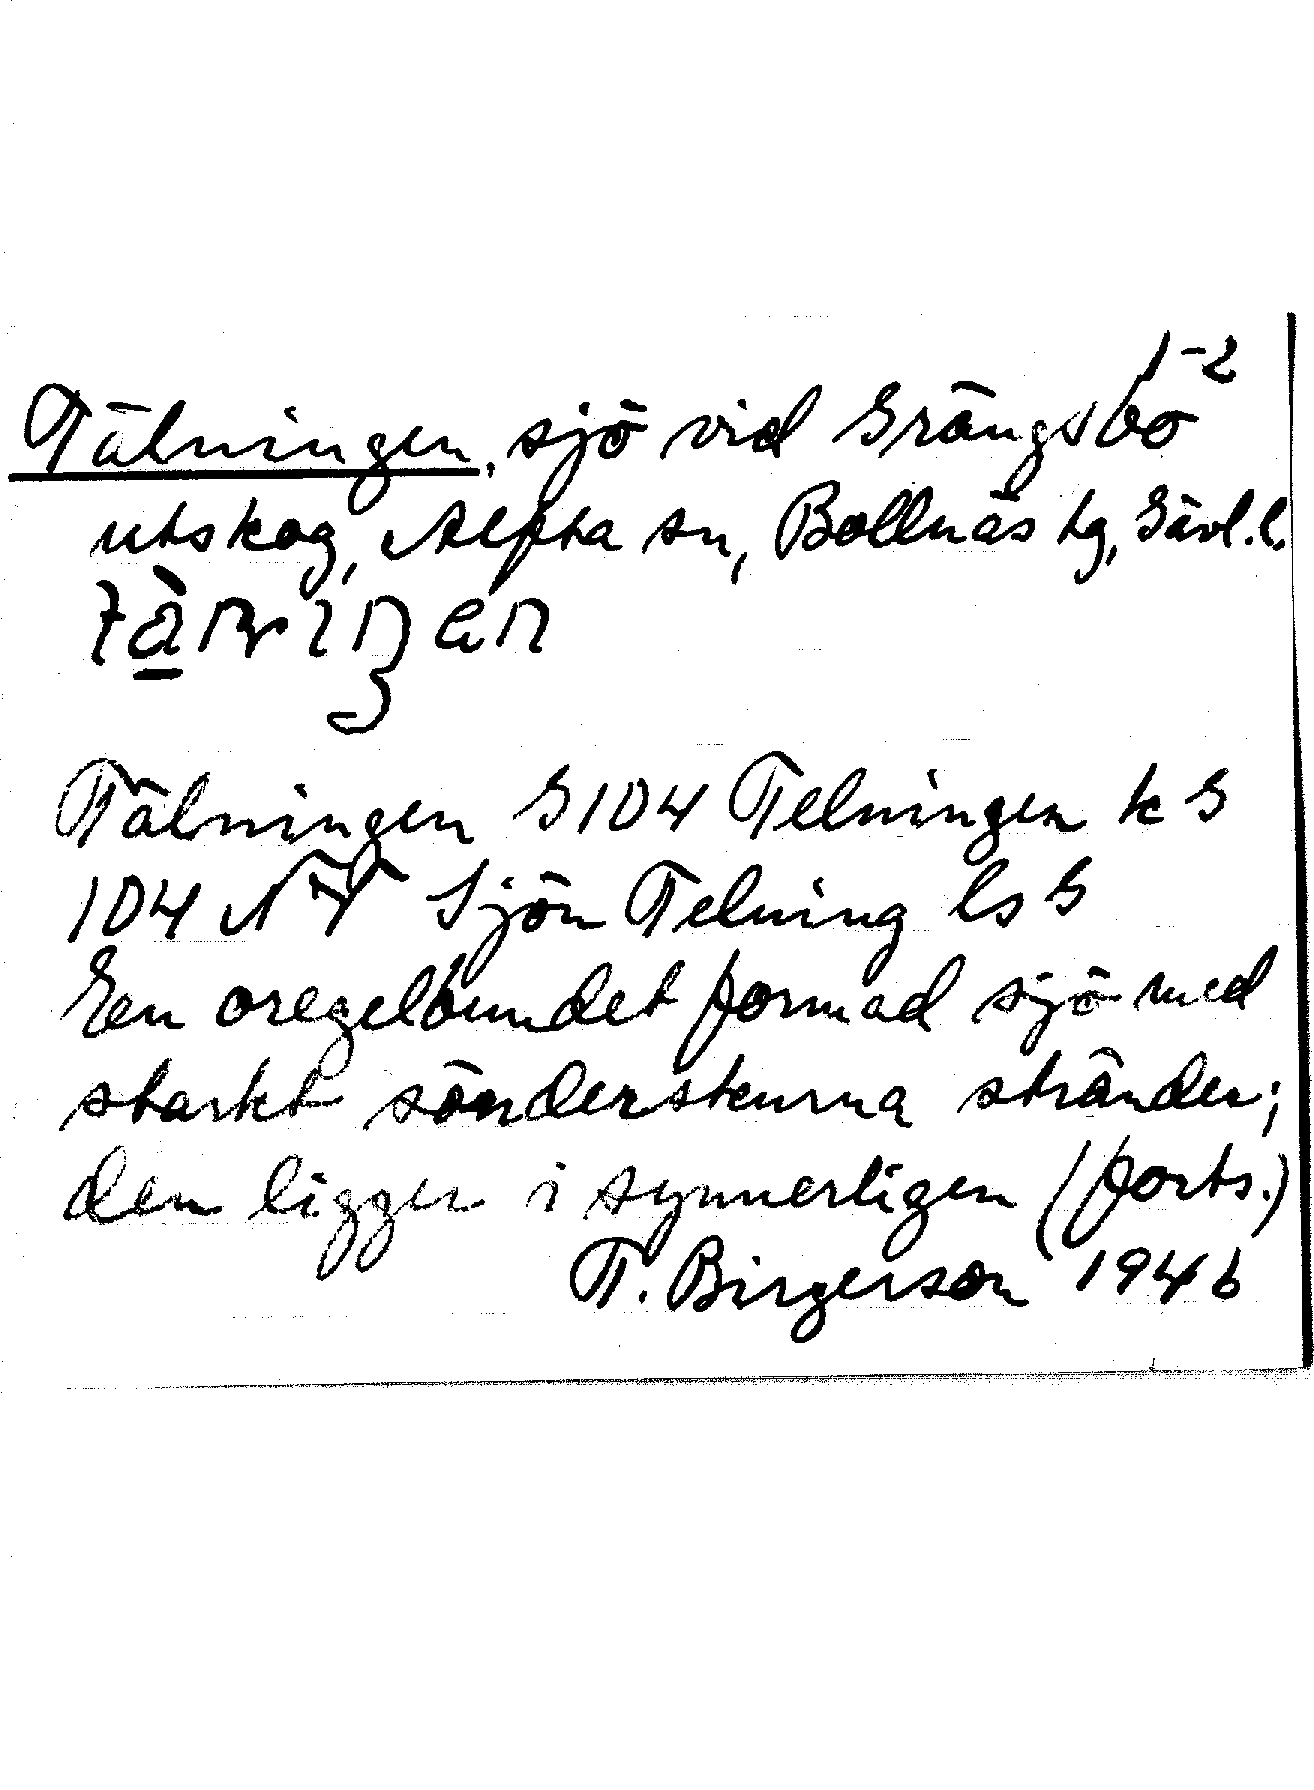 1-2
Tälningen, sjö vid Grängsbo
utskog, Alfta sn, Bollnäs tg, Gävl.l.
Tälningen G104 Telningen k G
104 NV Sjön Telning ls G
En oregelbundet formad sjö med
starkt sönderskurna stränder;
den ligger i synnerligen (forts.)
T. Birgerson 1946